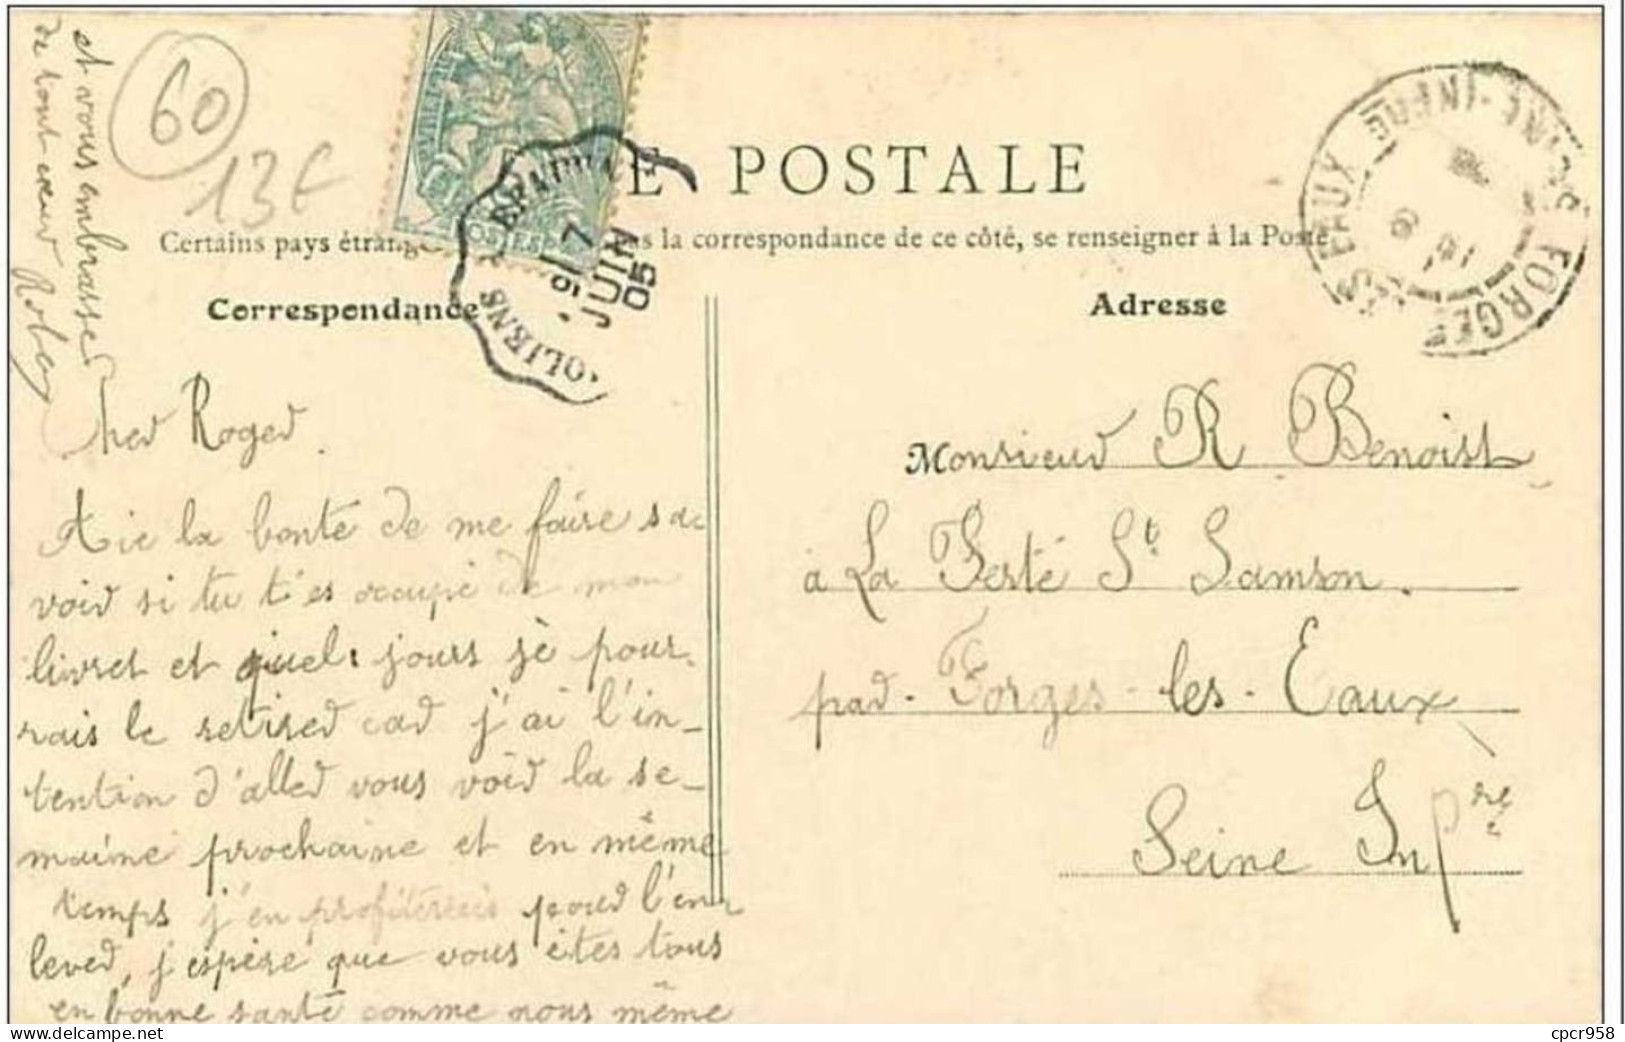 et vous embrasse
de tout cœur
60
13€
E POSTALE
Certains pays étrang as la correspondance de ce côté, se renseigner à la Poste
Correspondance
Adresse
7
JUIN
05
FORGES LES EAUX
SEINE-INFRE
Cher Roger
Aie la bonté de me faire sa-
voir si tu t'es occupé de mon
livret et quels jours je pour-
rais le retirer car j'ai l'in-
tention d'aller vous voir la se-
maine prochaine et en même
temps j'en profiterais pour l'en-
lever, j'espère que vous êtes tous
en bonne santé comme nous même
Monsieur R Benoist
à La Ferté St Samson.
par Forges-les-Eaux
Seine Infre
cpcr958